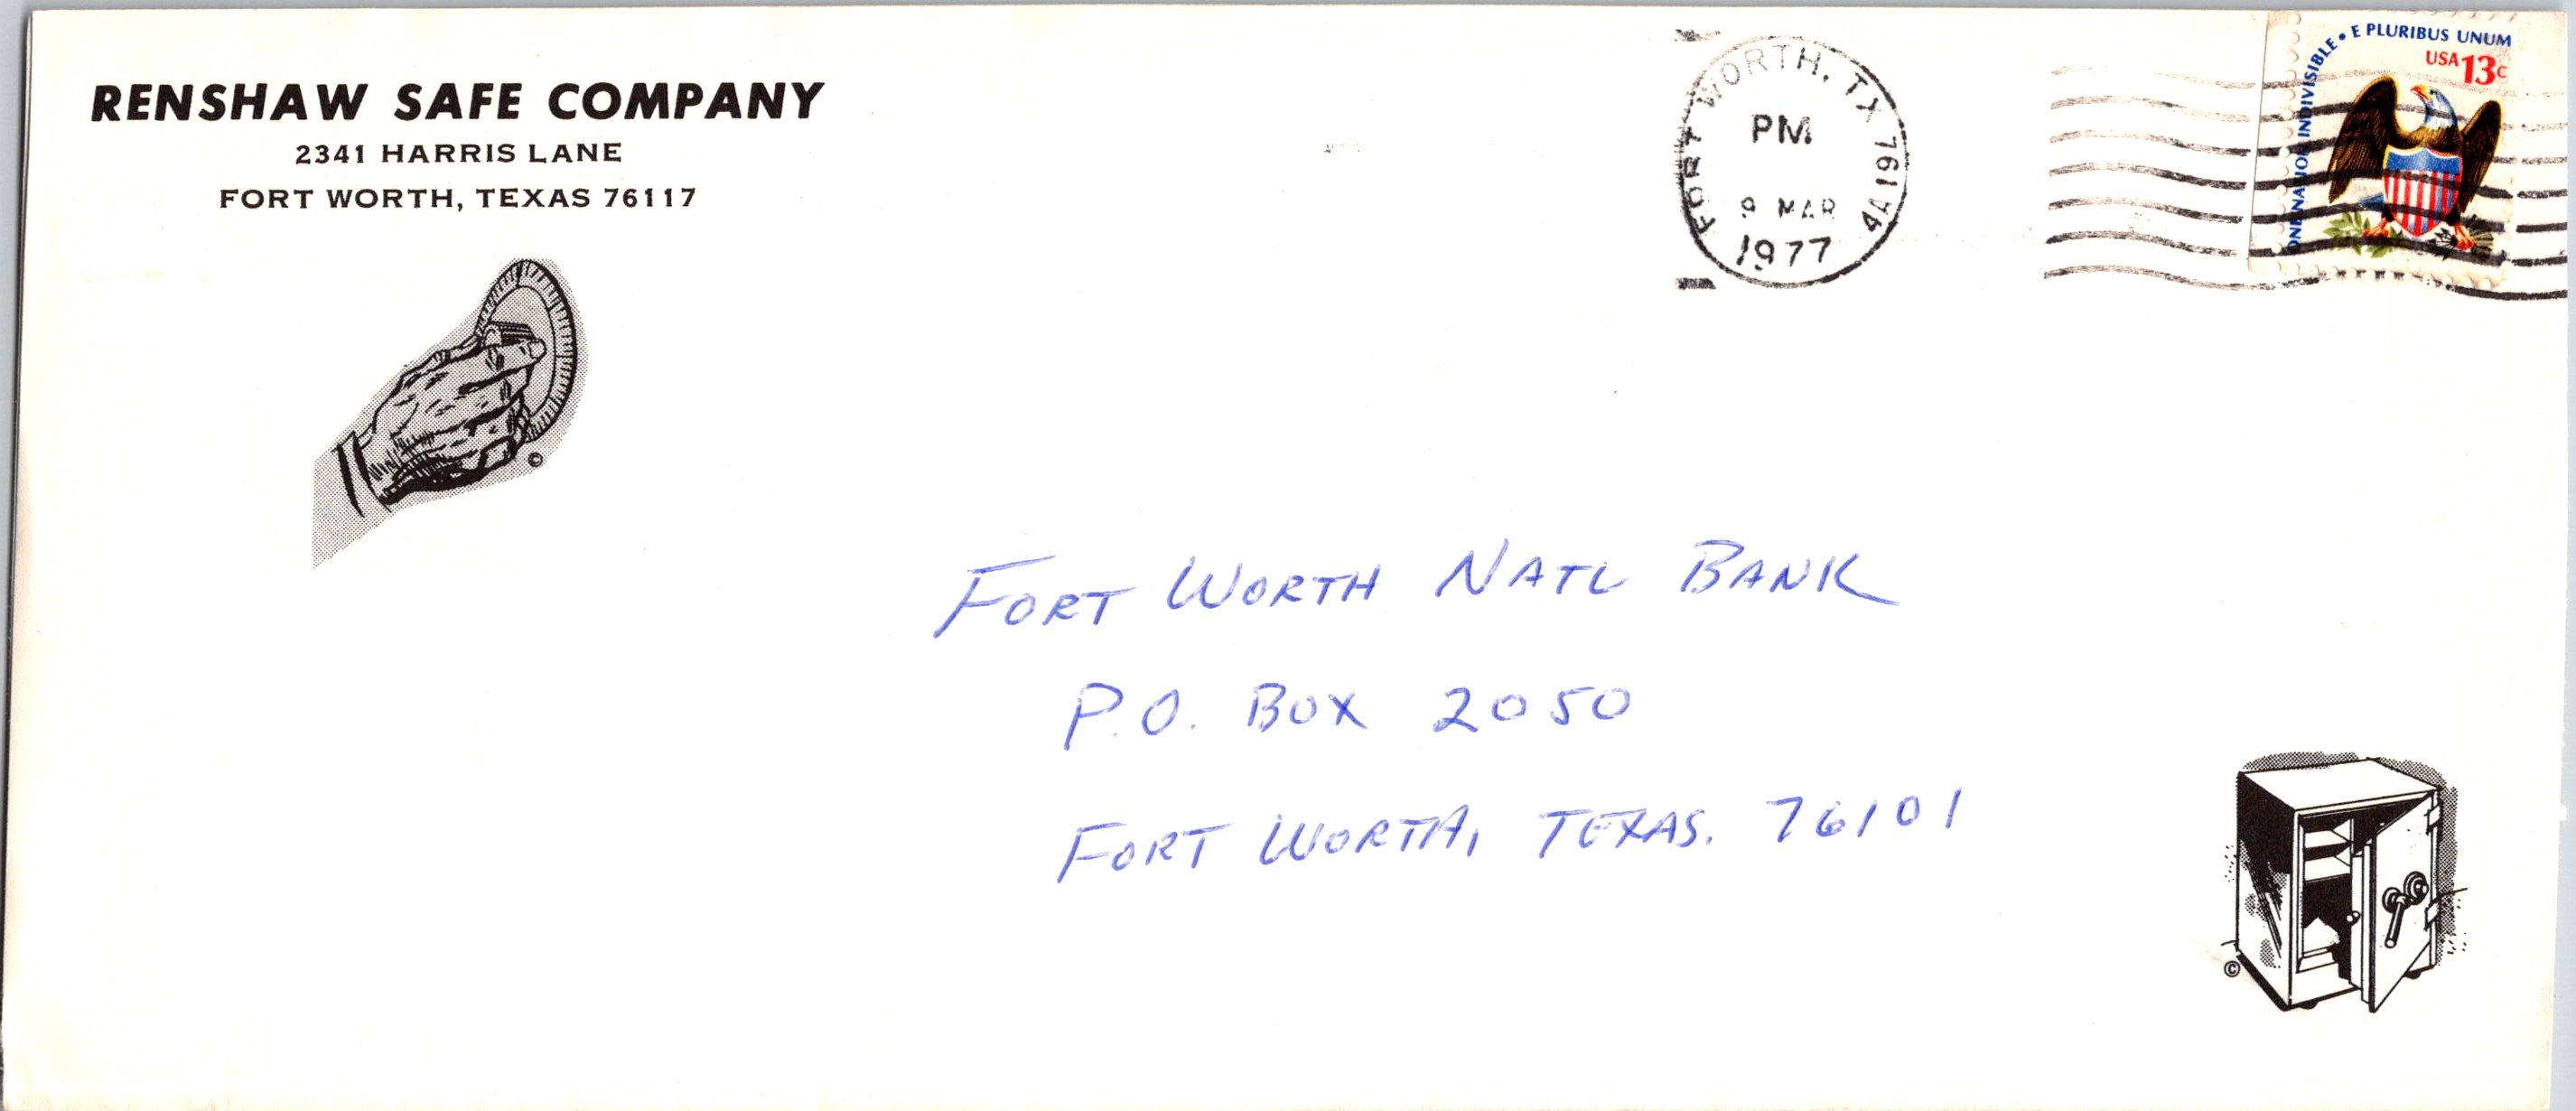 RENSHAW SAFE COMPANY
2341 HARRIS LANE
FORT WORTH, TEXAS 76117
©
FORT WORTH, TX 761
PM
9 MAR
1977
4A
ONE NATION INDIVISIBLE • E PLURIBUS UNUM
USA 13c
FORT WORTH NATL BANK
P.O. BOX 2050
FORT WORTH, TEXAS. 76101
©